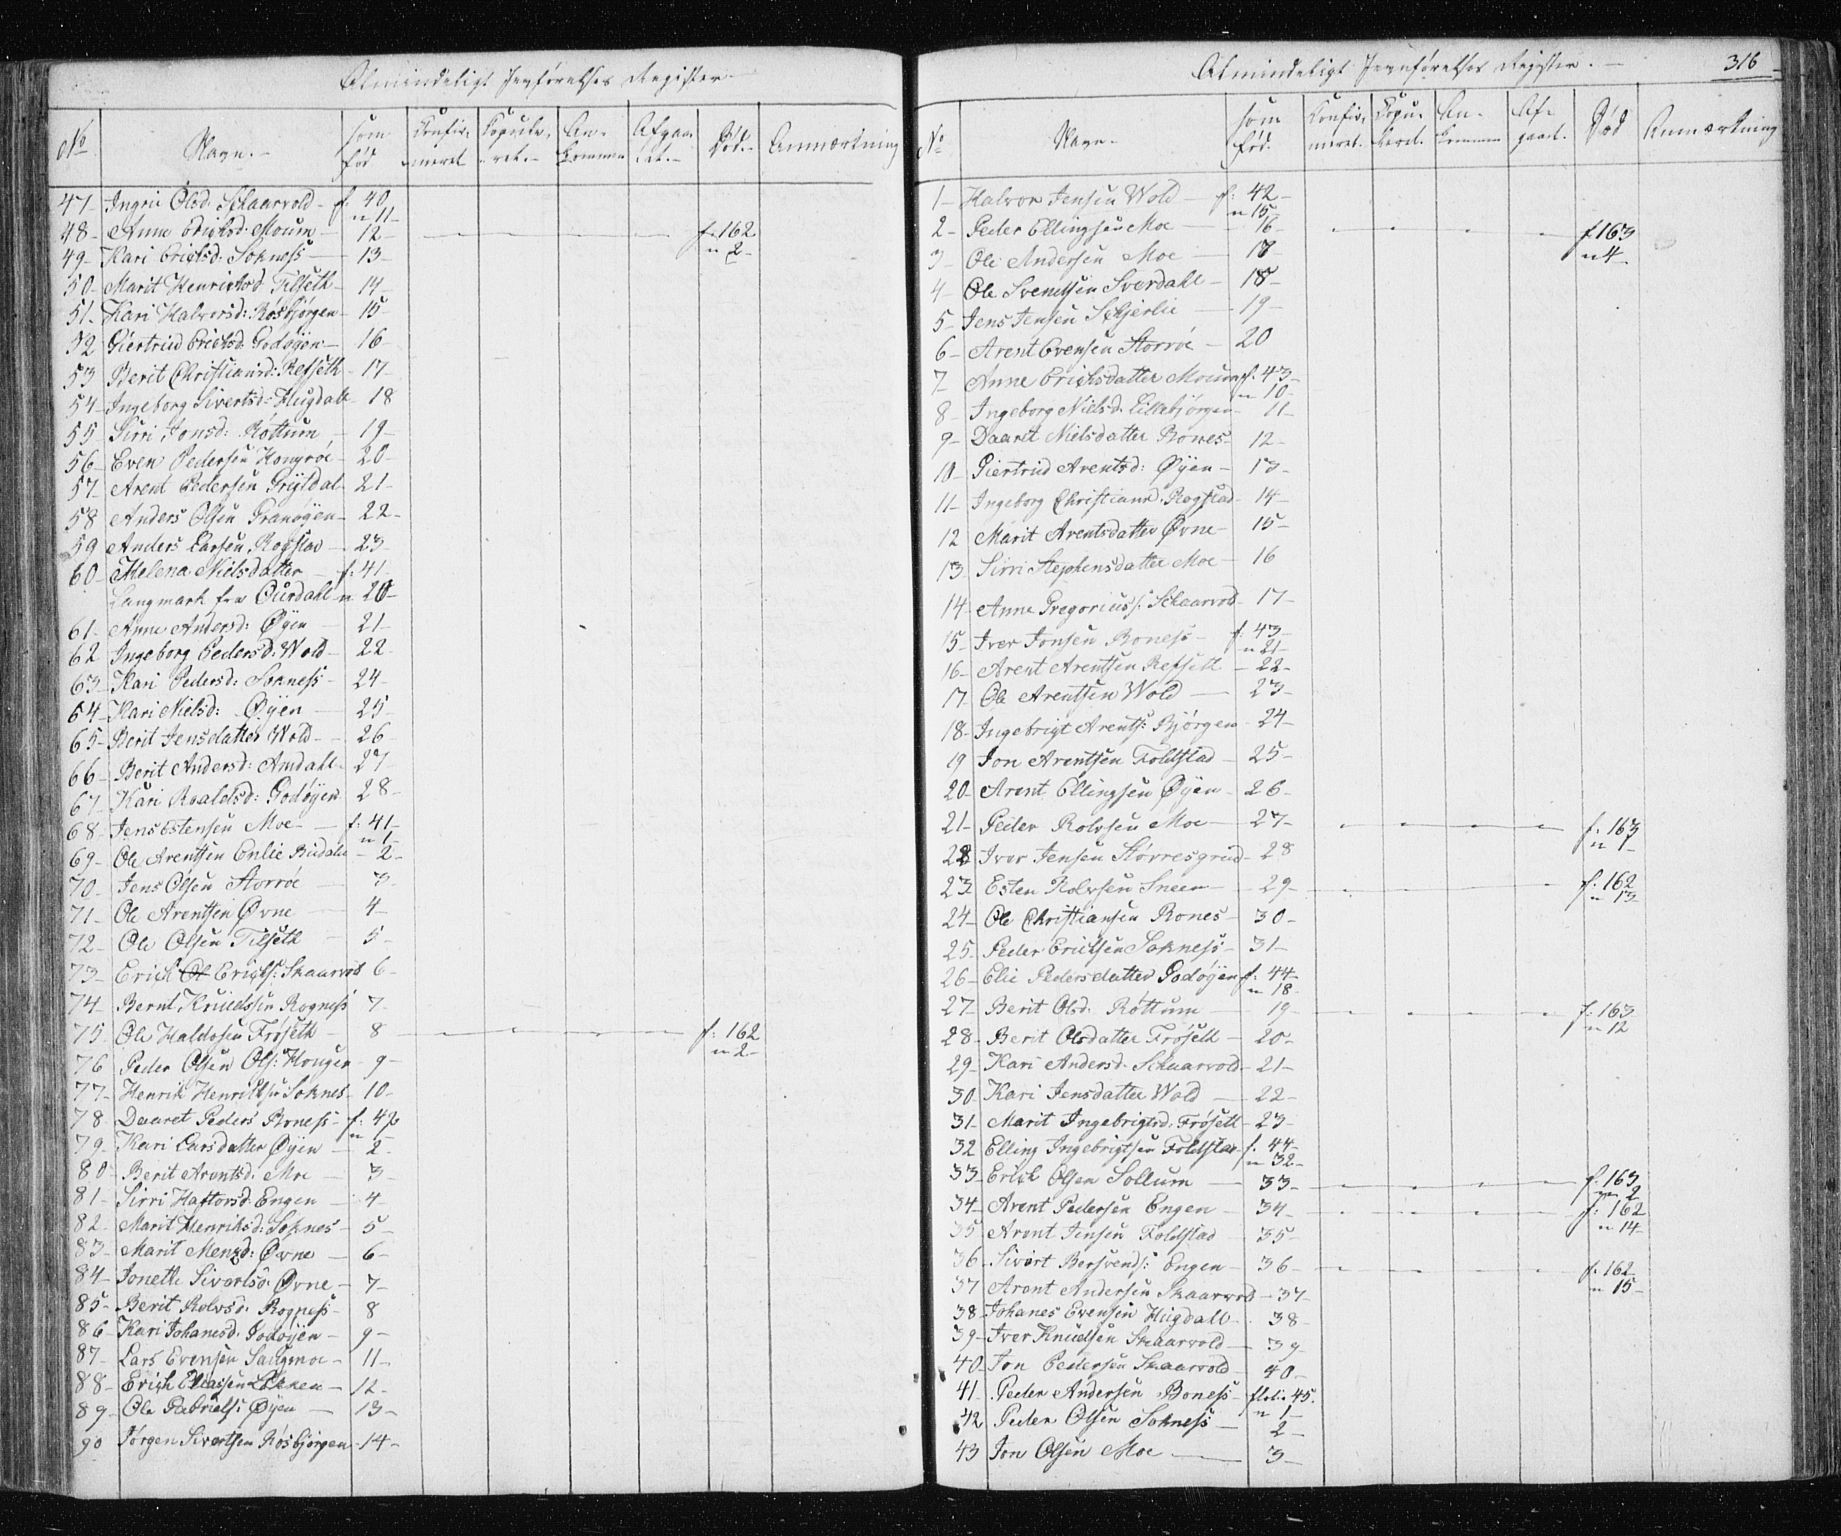 Almindeligt Jevnførelses Register.
No Navn. som fød Confirmeret Copuleret. Ankommen Afgaaet. Død. Anmærkning
47 Ingri Olsd. Schaarvold f. 40 n 11
48 Anne Erichsd. Moum 12 f. 162 n 2
49 Kari Erichsd. Sokness 13
50 Marit Henrichsd Tilseth 14
51 Kari Halvorsd: Rosbjørgen 15
52 Giertrud Erichsd. Godøyen 16
53 Berit Christiansd: Refseth 17
54 Ingeborg Sivertsd: Hugdal 18
55 Sirri Jonsd: Røttum 19
56 Even Pedersen Kongroe 20
57 Arent Pedersen Gryldal 21
58 Anders Olsen Granøyen 22
59 Anders Larsen Rogstad 23
60 Helena Nielsdatter f. 41
Langmark fra Ourdahl n 20
61 Anne Andersd: Øyen 21
62 Ingeborg Pedersd: Wold 22
63 Kari Pedersd: Sokness 24
64 Kari Nielsd: Øyen 25
65 Berit Jensdatter Wold 26
66 Berit Andersd: Amdahl 27
67 Kari Roaldsd: Godøyen 28
68 Jens Estensen Moe f: 41 n 1
69 Ole Arentsen Enlie Budahl 2
70 Jens Olsen Storroe 3
71 Ole Arentsen Øvne 4
72 Ole Olsen Tilseth 5
73 Erich Ol Erichs: Skaarvold 6
74 Bernt Knudssen Rogness 7
75 Ole Haldosen Frøseth 8 f: 162 n 2
76 Peder Olsen Ols: Hougen 9
77 Henrik Henriksen Soknes 10
78 Daaret Peders Boness f: 42 n 1
79 Kari Larsdatter Øyen 2
80 Berit Arentsd. Moe 3
81 Sirri Haftorsd: Engen 4
82 Marit Henriksd: Soknes 5
83 Marit Mensd: Øvne 6
84 Joneth Sivertsd Øvne 7
85 Berit Rolvsd: Rogness 8
86 Kari Johanesd. Godøyen 9
87 Lars Evensen Saugmoe 11
88 Erich Eliassen Løkken 12
89 Ole Gabriels: Øyen 13
90 Jørgen Sivertsen Rosbjørgen 14
Almindeligt Jevnførelses Register. 316
No Navn. som fød. Confirmeret. Copuleret. Ankommen Afgaaet. Død Anmærkning
1 Halvor Jensen Wold f: 42 n 15
2 Peder Ellingsen Moe 16 f 163 n 4
3 Ole Andersen Moe 17
4 Ole Svendsen Sverdahl 18
5 Jens Jensen Schjerlie 19
6 Arent Evensen Storroe 20
7 Anne Erichsdatter Moum f. 43 n 10
8 Ingeborg Nielsd. Lillebjørgen 11
9 Daaret Nielsdatter Bones 12
10 Giertrud Arentsd: Øyen 13
11 Ingeborg Christiansd. Rogstad 14
12 Marit Arentsdatter Øvne 15
13 Sirri Stephensdatter Moe 16
14 Anne Gregoriuss: Schaarvold 17
15 Iver Jonsen Boness f: 43 n 21
16 Arent Arentsen Refseth 22
17 Ole Arentsen Wold 23
18 Ingebrigt Arents: Bjørgen 24
19 Jon Arentsen Foldstad 25
20 Arent Ellingsen Øyen 26
21 Peder Rolvsen Moe 27 f: 163 n 1
22 Iver Jensen Størresgrud 28
23 Esten Rolvsen Sneen 29 f: 162 n 13
24 Ole Christiansen Bones 30
25 Peder Erichsen Sokness 31
26 Elie Pedersdatter Godøyen f. 44 n 18
27 Berit Olsd. Røttum 19 f: 163 n 12
28 Berit Olsdatter Frøseth 20
29 Kari Andersd. Schaarvold 21
30 Kari Jensdatter Wold 22
31 Marit Ingebrigtsd. Frøseth 23
32 Elling Ingebrigtsen Foldstad f. 44 n 32
33 Erich Olsen Sollum 33 f: 163 n 2
34 Arent Pedersen Engen 34 f: 162 n 14
35 Arent Jensen Foldstad 35
36 Sivert Bersvends: Engen 36 f. 162 n 15
37 Arent Andersen Skaarvold 37
38 Johanes Evensen Hugdall 38
39 Iver Knudsen Skaarvold 39
40 Jon Pedersen Skaarvold 40
41 Peder Andersen Boness folie 45. n 1
42 Peder Olsen Sokness 2
43 Jon Olsen Moe 3